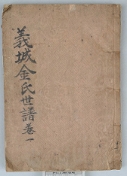 義城金氏世譜卷一